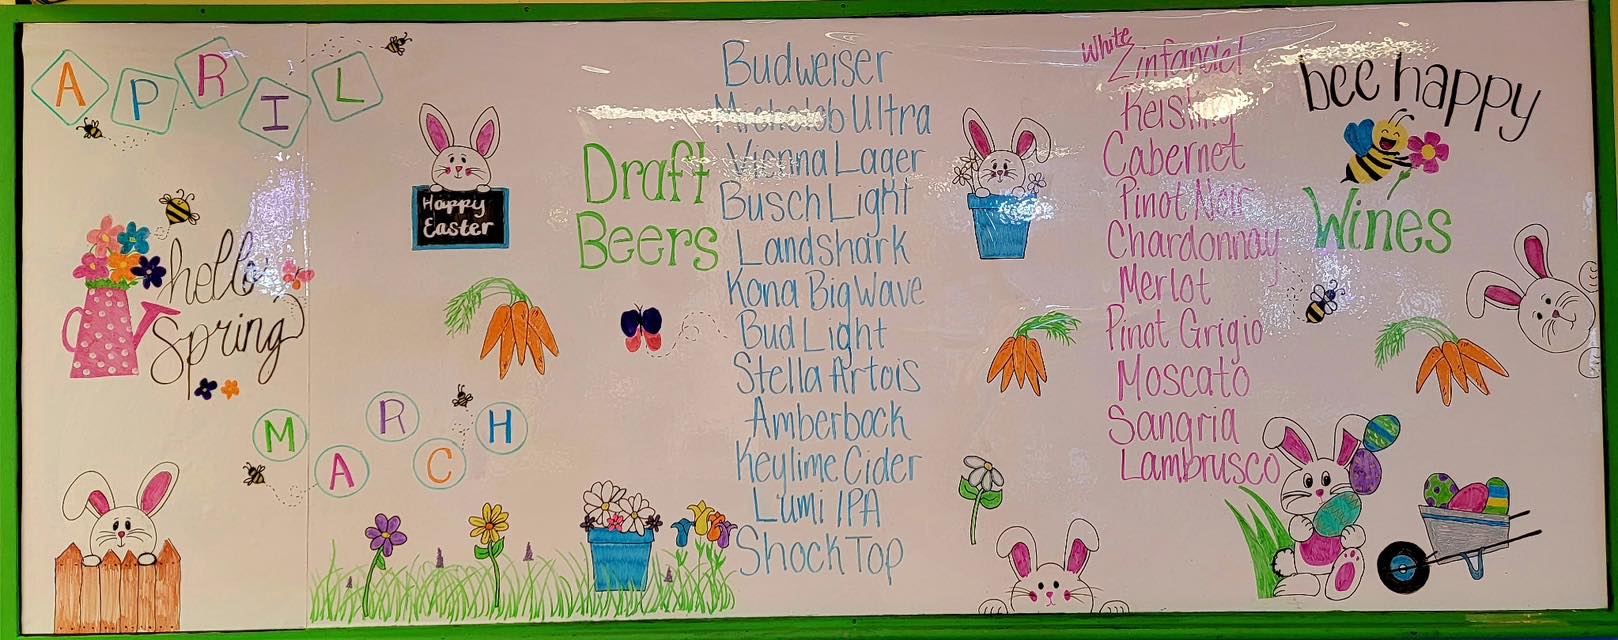 APRIL
hello
Spring
MARCH
Happy
Easter
Draft
Beers
Budweiser
Michelob Ultra
Vienna Lager
Busch Light
Landshark
Kona Big Wave
Bud Light
Stella Artois
Amberbock
Keylime Cider
Lumi IPA
Shock Top
White
Zinfandel
Reisling
Cabernet
Pinot Noir
Chardonnay
Merlot
Pinot Grigio
Moscato
Sangria
Lambrusco
bee happy
Wines